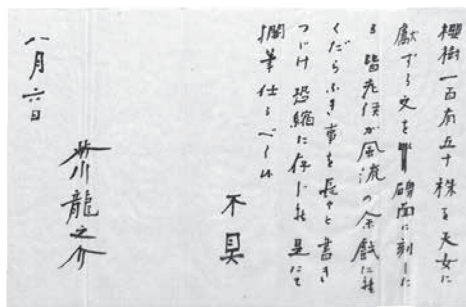 櫻樹一百有五十株を天女に
獻ずる文を碑面に刻した
る 皆老侯が風流の余戯に候
くだらぬ事を長々と書き
つづけ 恐縮に存じ候 是にて
擱筆仕るべく候
不具
八月六日
芥川龍之介